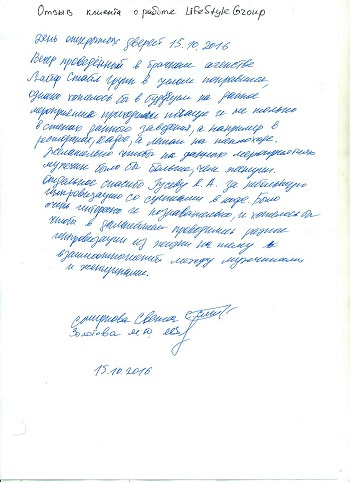 Отзыв клиента о работе LifeStyleGroup
День открытых дверей 15.10.2016
Вечер проведённый в брачном агенстве
Лайф Стайл Групп в целом понравился,
однако хотелось бы в будущем на данное
мероприятие приходили почаще и не только
в стенах данного заведения, а например в
ресторане, кафе, а летом на теплоходе.
Желательно чтобы на данном мероприятии
мужчин было бы больше, чем женщин.
Отдельное спасибо Гусеву К.А. за небольшую
импровизацию со сценками в виде. Было
очень интересно и познавательно, и хотелось бы
чтобы в дальнейшем проводились разные
импровизации из жизни на тему
взаимоотношений между мужчинами
и женщинами.
Смирнова Светлана
Золотова М.Ю.
15.10.2016